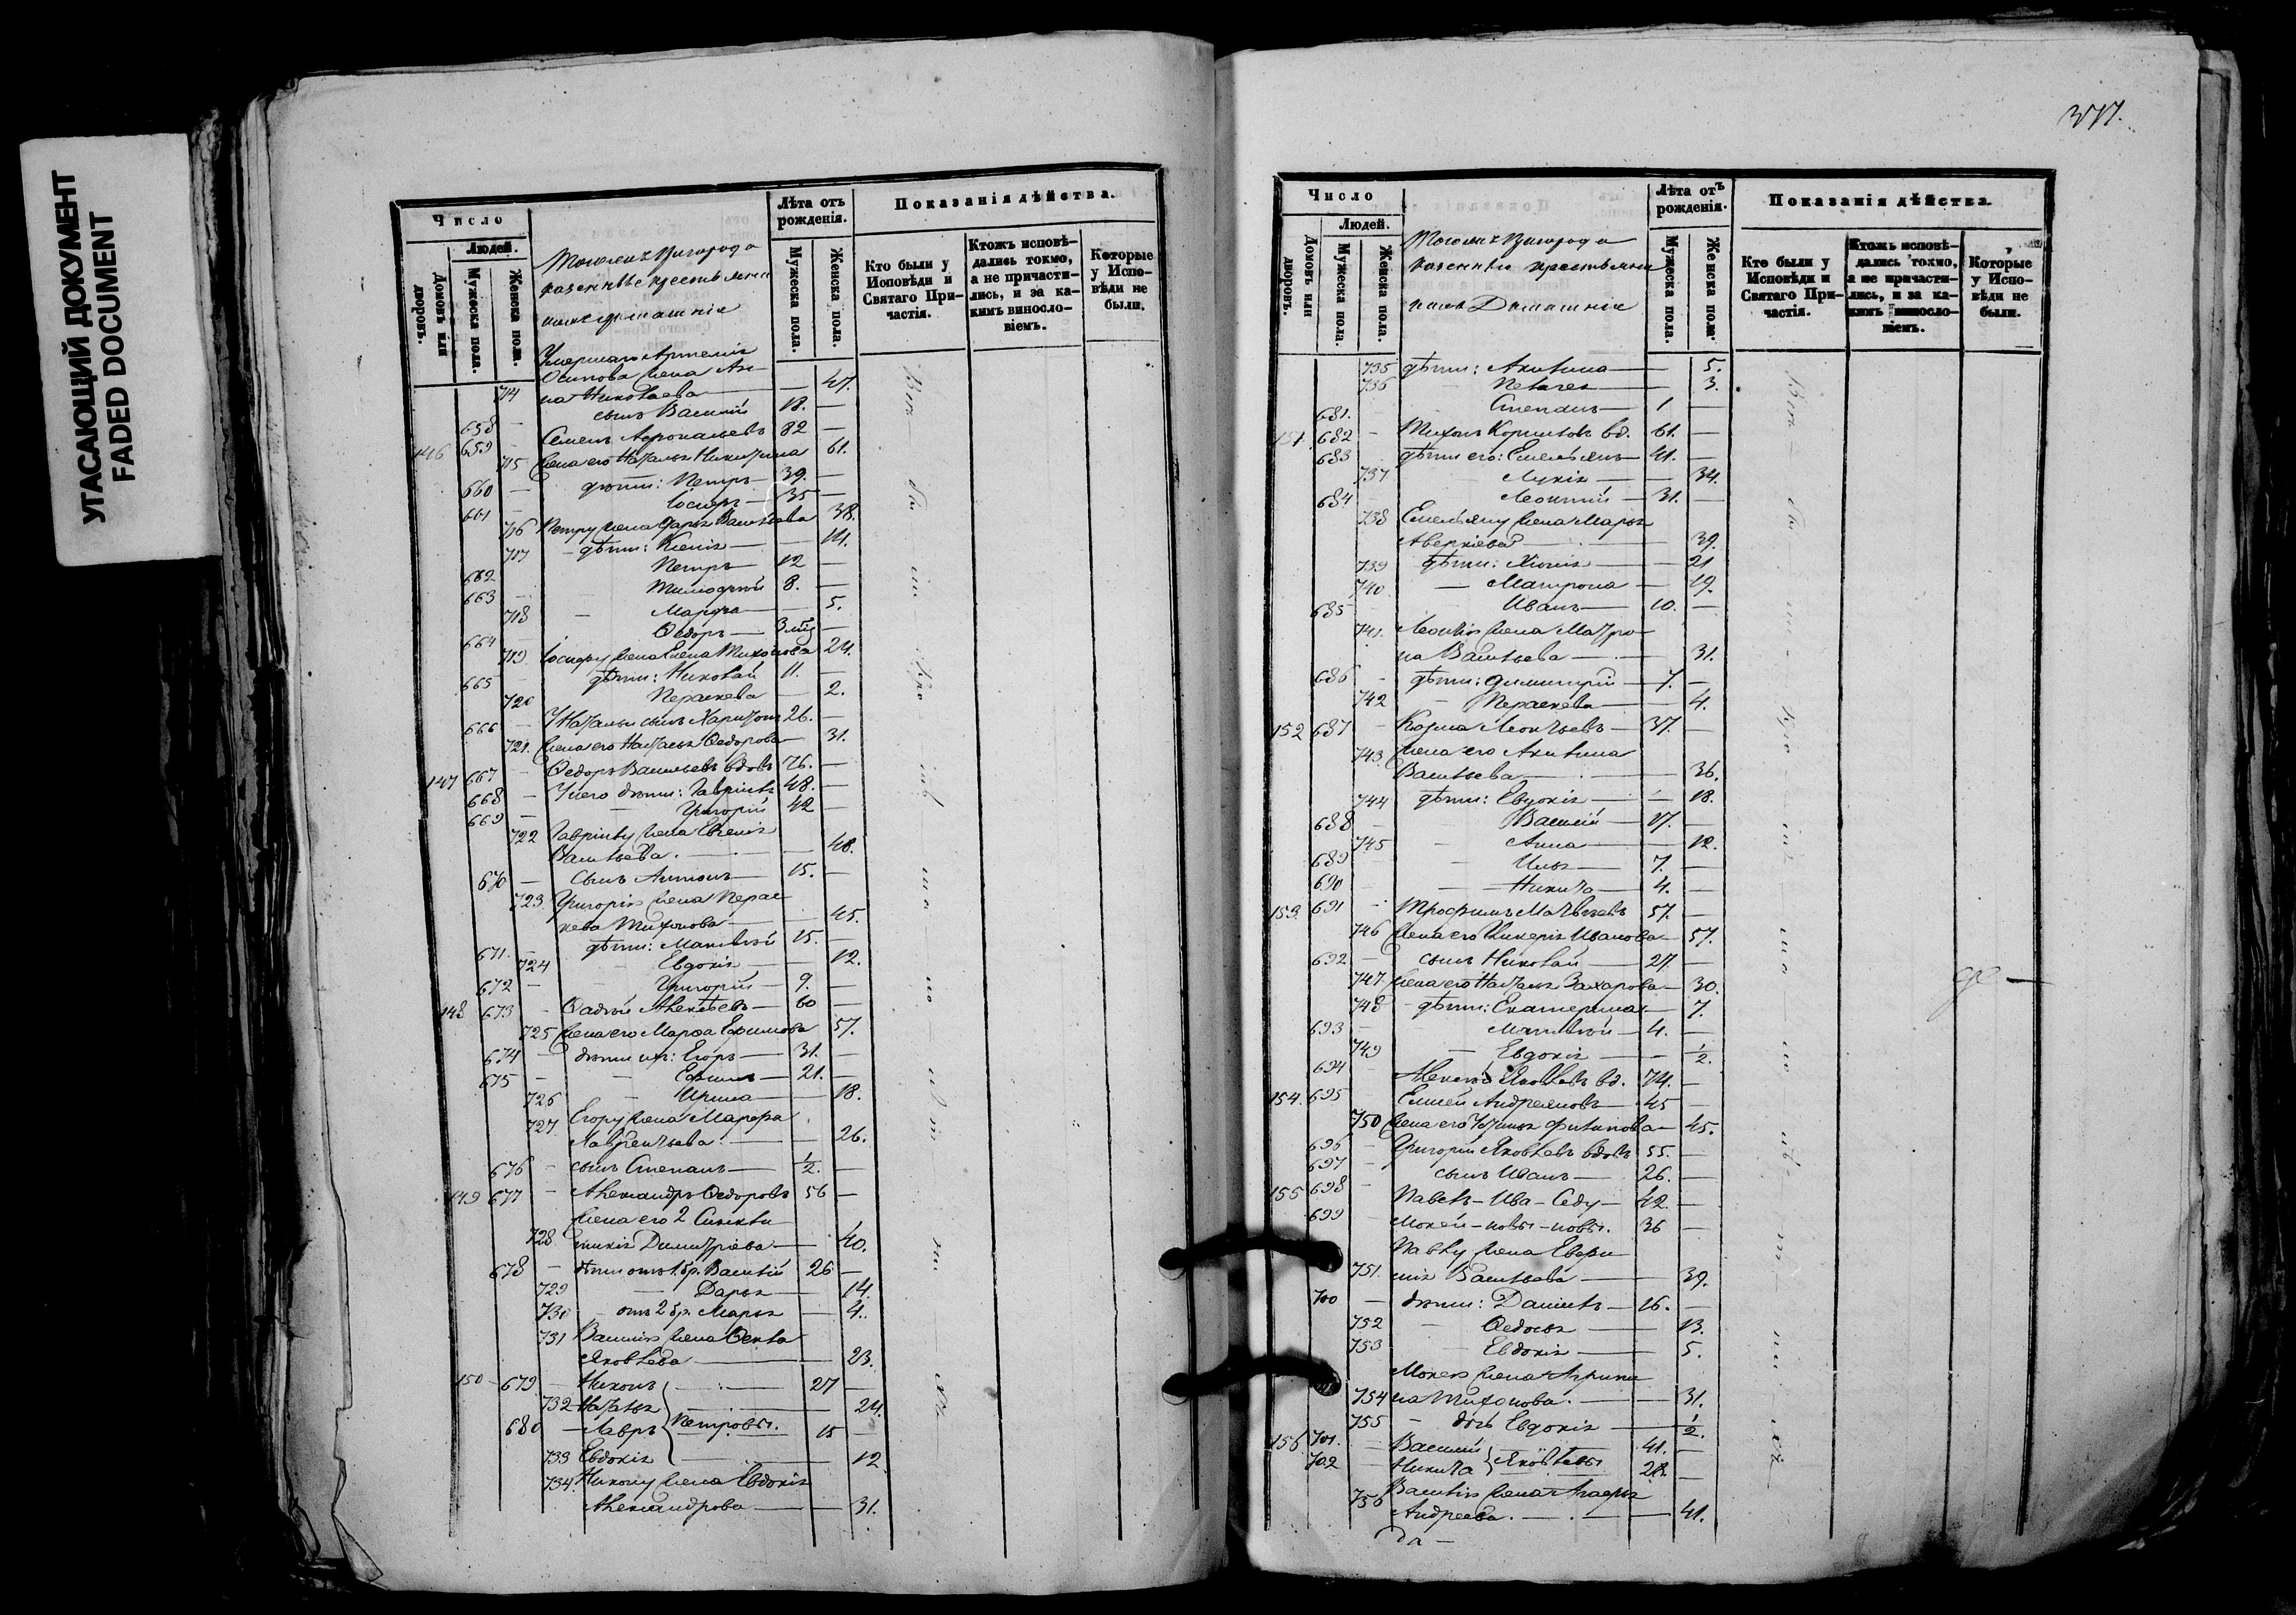 УГАСАЮЩИЙ ДОКУМЕНТ
FADED DOCUMENT
Число
Людей.
Домовъ или дворовъ.
Мужеска пола.
Женска пола.
казенные крестьяне
Лѣта отъ рожденія.
Мужеска пола.
Женска пола.
Показанія дѣйства.
Кто были у Исповѣди и Святаго Причастія.
Ктожъ исповѣдались токмо, а не причастились, и за какимъ винословіемъ.
Которые у Исповѣди не были.
Умершаго Артемія
Осипова жена Ан-
714 на Николаева — 47.
658 сынъ Василій 18. —
146 659 Семенъ 82 —
715 жена его Наталья Никитина 61.
660 дѣти: Петръ 39. —
661 Іосифъ 35 —
716 Петру жена Дарья Васильева 38.
717 дѣти: Ксенія — 14.
662 Петръ 12 —
663 Тимофѣй 8. —
718 Марфа — 5.
664 Ѳедоръ 3 мѣ —
719 Іосифу жена Елена Тихонова 24.
665 дѣти: Николай 11. —
720 Параскева — 2.
666 У Натальи сынъ Харитонъ 26. —
721. жена его Наталья Ѳедорова 31.
147 667 Ѳедоръ Васильевъ вдовъ 76. —
668 У него дѣти: Гавріилъ 48. —
669 Григорій 42 —
722 Гавріилу жена Евгенія
Васильева. — 48.
670 сынъ Антонъ 15. —
723 Григорія жена Парас-
кева Тихонова — 45.
671. дѣти: Матвѣй 15. —
724 Евдокія — 12.
672 Григорій 9. —
148 673 Фадѣй Алексѣевъ 60 —
725 жена его Марѳа Ефимова 57.
674 дѣти ихъ: Егоръ 31. —
675 Ефимъ 21. —
726 Ирина — 18.
727 Егору жена Марфа
Лаврентьева — 26.
676 сынъ Степанъ ½. —
149 677 Александръ Ѳедоровъ 56 —
жена его 2 Синкли-
728 тикія Димитріева — 40.
678 дѣти отъ 1 бр. Василій 26 —
729 Дарья — 14.
730 отъ 2 бр. Марья — 4.
731 Василія жена Ѳекла
Яковлева — 23.
150 679 Никонъ 27 —
732 Наталья — 24.
Петровы.
680 Лавръ 15 —
733 Евдокія — 12
734. Никону жена Евдокія
Александрова — 31.
Число
Людей.
Домовъ или дворовъ.
Мужеска пола.
Женска пола.
казенные крестьяне
Лѣта отъ рожденія.
Мужеска пола.
Женска пола.
Показанія дѣйства.
Кто были у Исповѣди и Святаго Причастія.
Ктожъ исповѣдались токмо, а не причастились, и за какимъ винословіемъ.
Которые у Исповѣди не были.
735 дѣти: Акилина — 5.
736 Пелагея — 3.
681. Степанъ 1 —
151 682 Тихонъ вд. 61. —
683 дѣти его: Емельянъ 41. —
737 — 34.
684 Леонтій 31. —
738 Емельяну жена Марья
Аверкіева — 39.
739 дѣти: Хіонія — 21
740 Матрона — 19.
685 Иванъ 10. —
741. Леонтія жена Матро-
на Васильева — 31.
686 дѣти: Димитрій 7. —
742 Параскева — 4.
152 687 Козма Леонтьевъ 37. —
743 жена его Акилина
Васильева — 36.
744 дѣти: Евдокія — 18.
688 Василій 17. —
745 Анна — 12.
689 Илья 7. —
690 Никита 4. —
153 691 Трофимъ Матвѣевъ 57. —
746 жена его Гликерія Иванова 57.
692 сынъ Николай 27. —
747 жена его Наталья Захарова 30.
748 дѣти: Екатерина — 7.
693 Матвѣй 4. —
749 Евдокія — ½
694 Алексѣй Яковлевъ вд. 74. —
154 695 Елисей Андреяновъ 45 —
750 жена его Устинья Филипова 45.
696 Григорій Яковлевъ вдовъ 55. —
697 сынъ Иванъ 26. —
155 698 Павелъ — Ива — Седу — 42. —
699 Мокей — новы — новы. 36 —
Павлу жена Евфи-
751. мія Васильева — 39.
700 дѣти: Даніилъ 16. —
752 Ѳедосья — 13.
753 Евдокія — 5.
Мокея жена Агрипи-
754 на Тихонова. — 31.
755 дочь Евдокія — ½.
156 701. Василій 41. —
Яковлевы
702 Никита 28. —
756 Василія жена Агафья
Андреева. — 41.
Да —